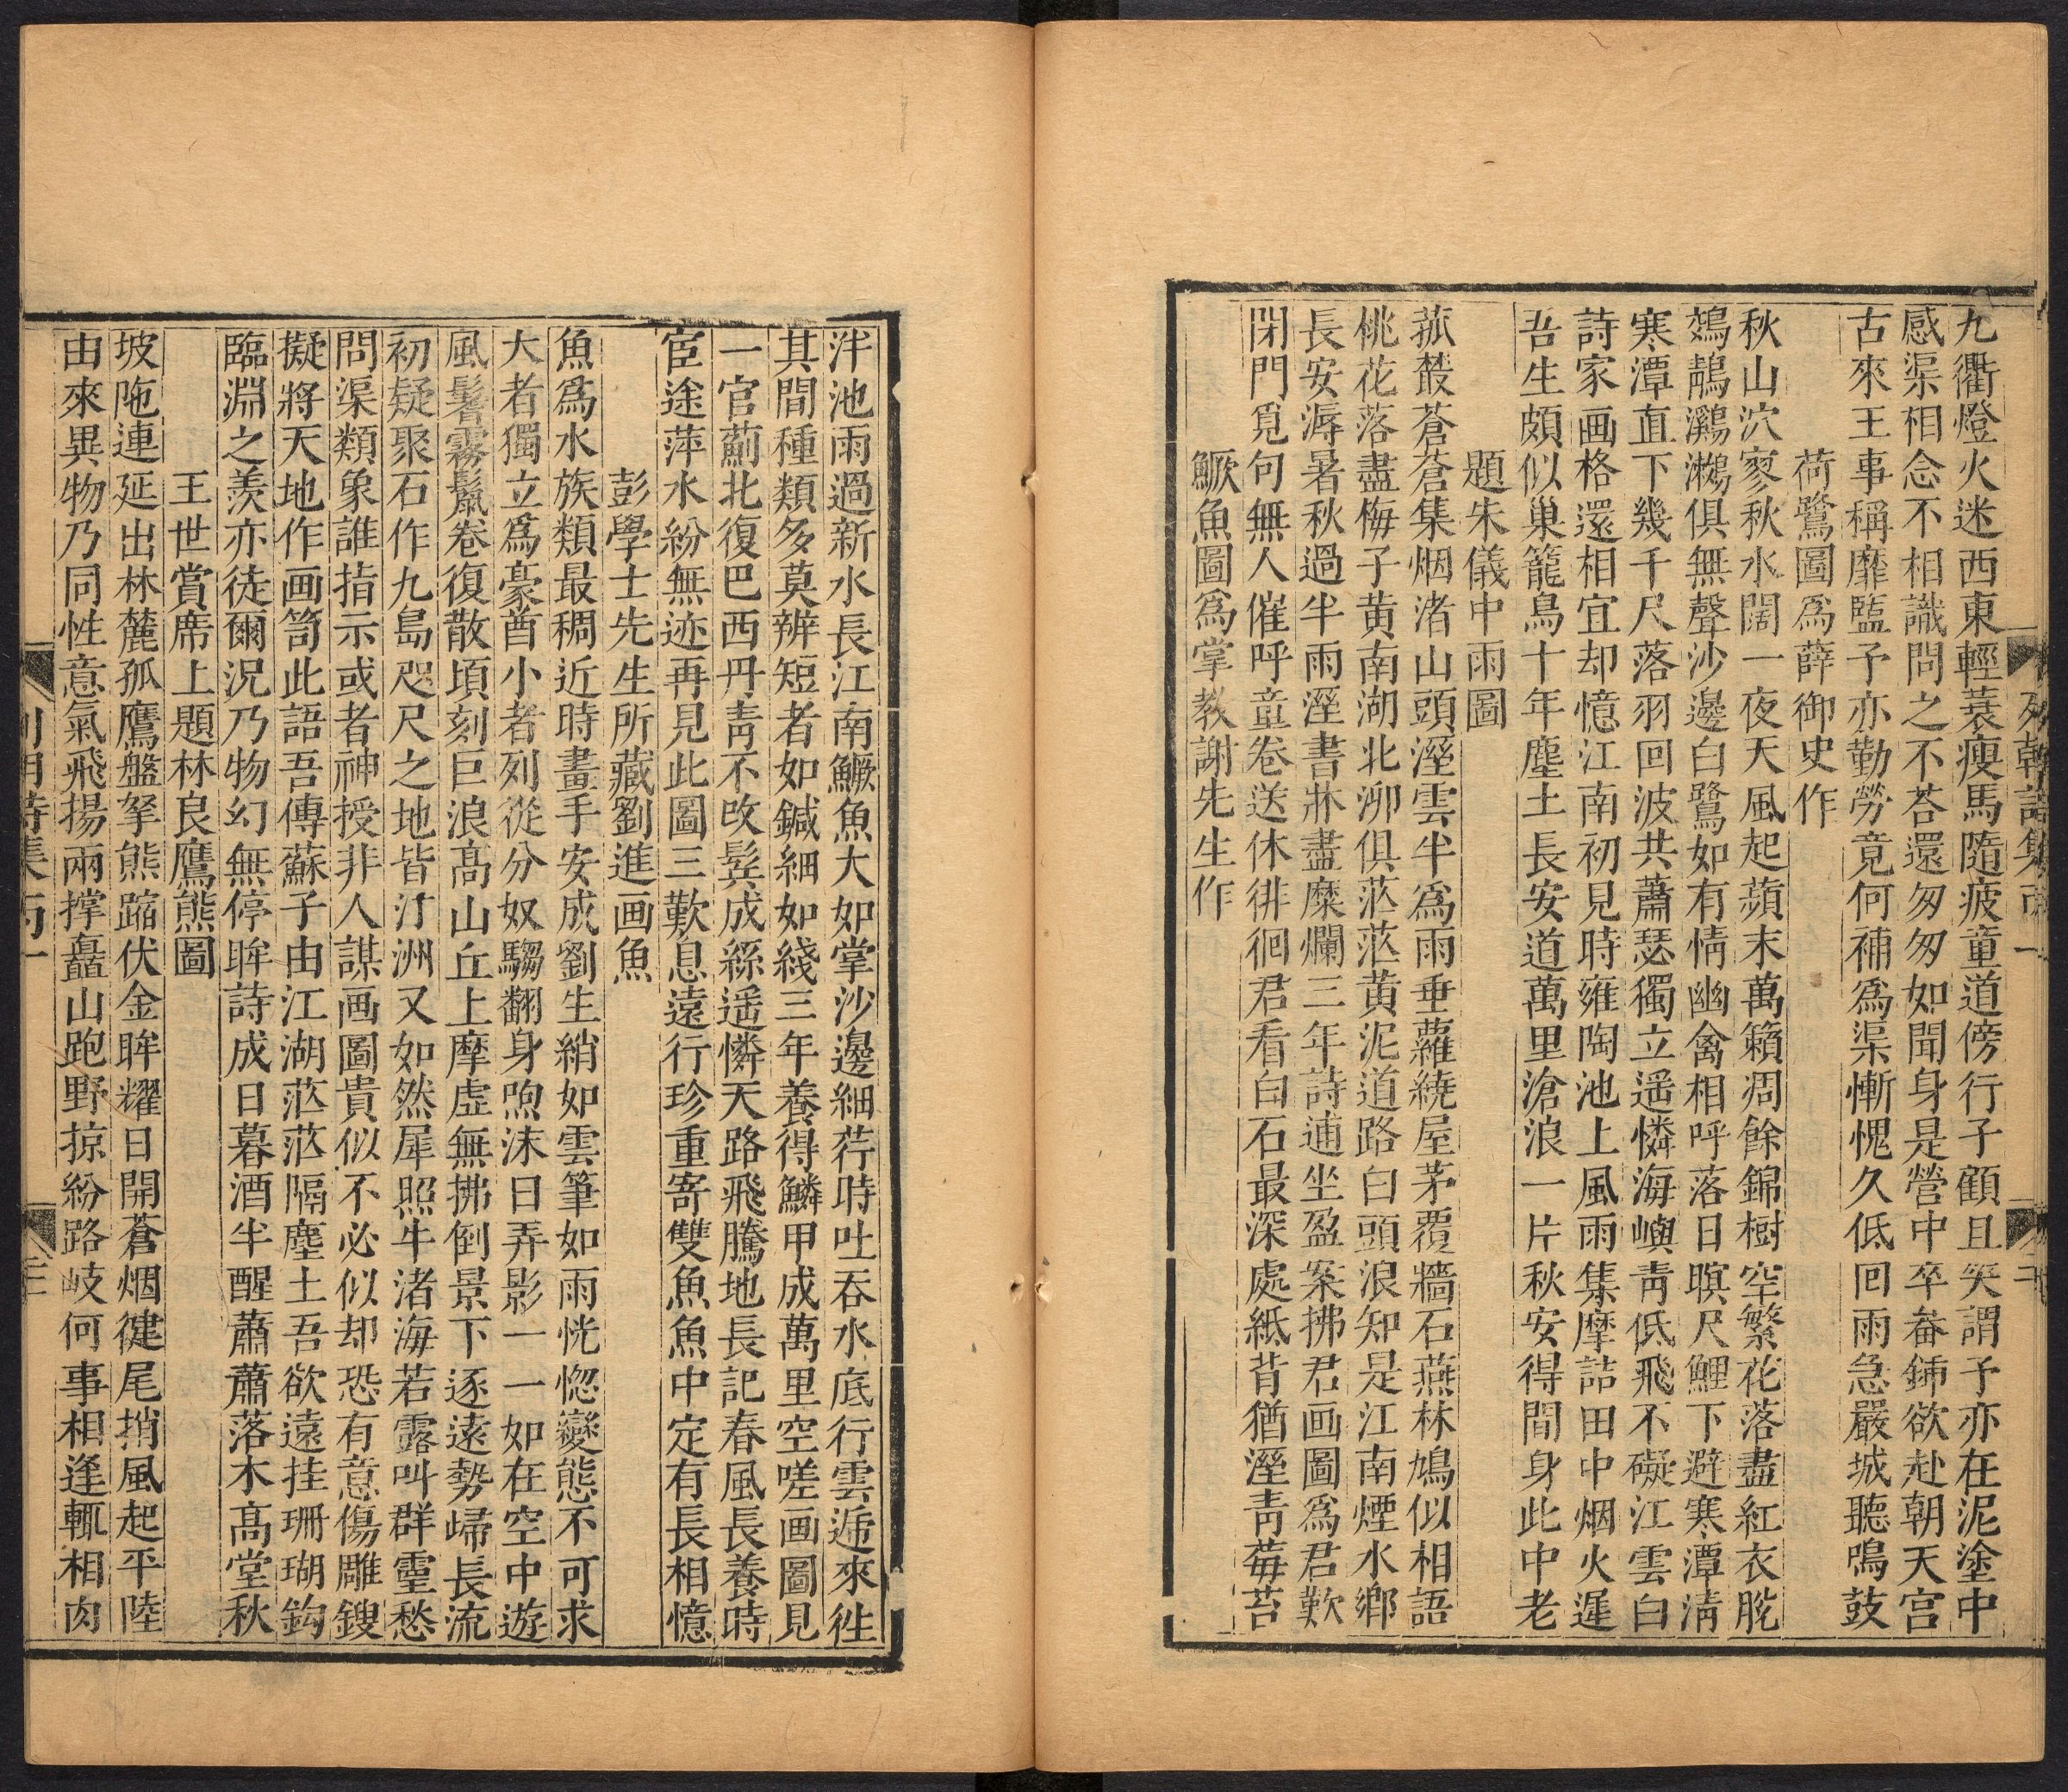 九衢燈火迷西東輕蓑瘦馬隨疲童道傍行子顧且笑謂予亦在泥塗中
感渠相念不相識問之不荅還匆匆如聞身是營中卒畚鍤欲赴朝天宮
古來王事稱靡盬予亦勤勞竟何補為渠慚愧久低回雨急嚴城聽鳴鼓
荷鷺圖為薛御史作
秋山泬寥秋水闊一夜天風起蘋末萬籟凋餘錦樹空繁花落盡紅衣脫
鵁鶄鸂鷘俱無聲沙邊白鷺如有情幽禽相呼落日暝尺鯉下避寒潭清
寒潭直下幾千尺落羽回波共蕭瑟獨立遥憐海嶼青低飛不礙江雲白
詩家画格還相宜却憶江南初見時雍陶池上風雨集摩詰田中烟火遲
吾生頗似巢籠鳥十年塵土長安道萬里滄浪一片秋安得閒身此中老
題朱儀中雨圖
菰叢蒼蒼集烟渚山頭溼雲半為雨垂蘿繞屋茅覆牆石燕林鳩似相語
桃花落盡梅子黄南湖北泖俱茫茫黄泥道路白頭浪知是江南煙水鄉
長安溽暑秋過半雨溼書牀盡糜爛三年詩逋坐盈案拂君画圖為君歎
閉門覓句無人催呼童卷送休徘徊君看白石最深處紙背猶溼青莓苔
鱖魚圖為掌教謝先生作
泮池雨過新水長江南鱖魚大如掌沙邊細荇時吐吞水底行雲遞來徃
其間種類多莫辨短者如鍼細如綫三年養得鱗甲成萬里空嗟画圖見
一官薊北復巴西丹青不改髩成絲遥憐天路飛騰地長記春風長養時
宦途萍水紛無迹再見此圖三歎息遠行珍重寄雙魚魚中定有長相憶
彭學士先生所藏劉進画魚
魚為水族類最稠近時畫手安成劉生綃如雲筆如雨恍惚變態不可求
大者獨立為豪酋小者列從分奴騶翻身喣沫日弄影一一如在空中遊
風鬐霧鬣卷復散頃刻巨浪高山丘上摩虛無拂倒景下逐遠勢歸長流
初疑聚石作九島咫尺之地皆汀洲又如然犀照牛渚海若露叫群靈愁
問渠類象誰指示或者神授非人謀画圖貴似不必似却恐有意傷雕鎪
擬將天地作画笥此語吾傳蘇子由江湖茫茫隔塵土吾欲遠挂珊瑚鈎
臨淵之羡亦徒爾況乃物幻無停眸詩成日暮酒半醒蕭蕭落木高堂秋
王世賞席上題林良鷹熊圖
坡陁連延出林麓孤鷹盤拏熊踞伏金眸耀日開蒼烟健尾捎風起平陸
由來異物乃同性意氣飛揚兩撑矗山跑野掠紛路岐何事相逢輒相肉